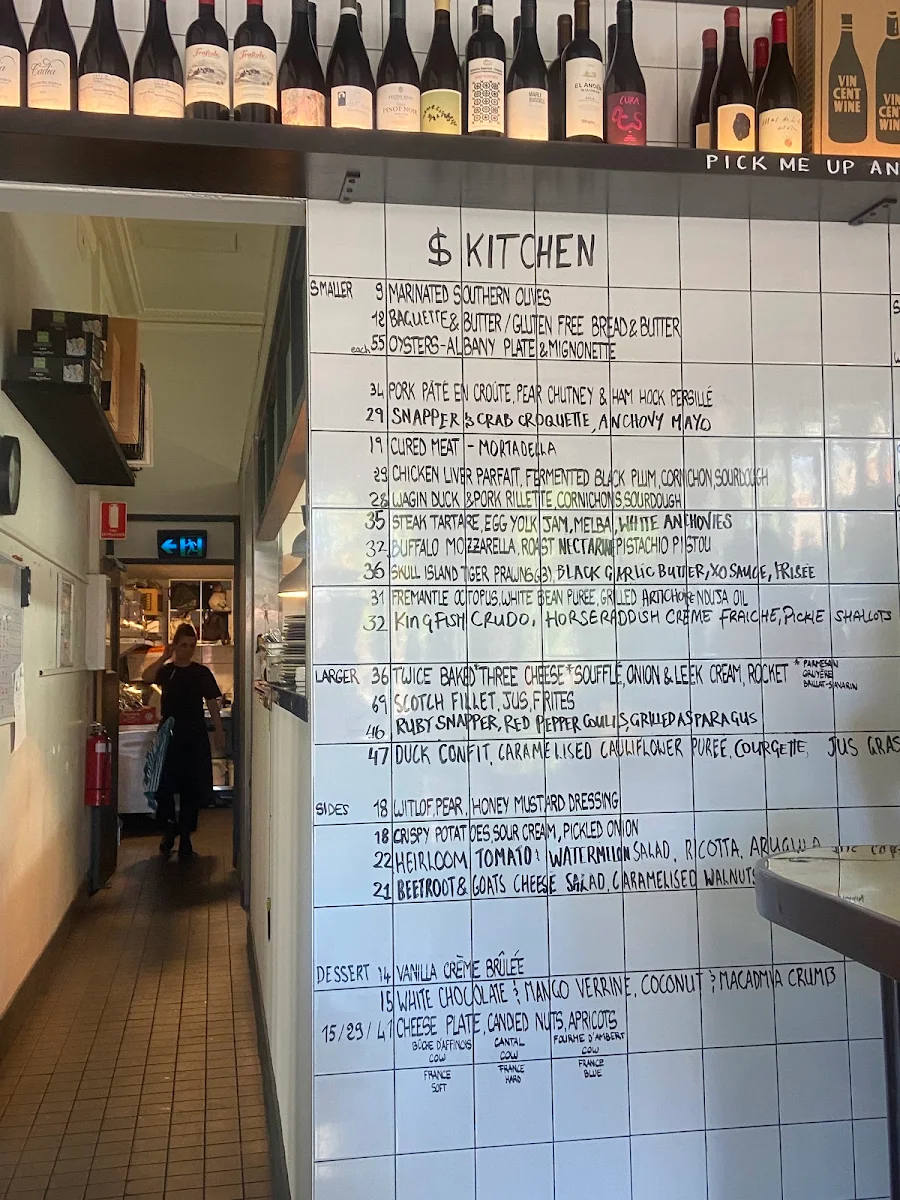 Tea
PINOT NOIR
EL ANDÉN
CUKA
VIN
CENT
WINE
VIN
CENT
WINE
PICK ME UP AN
$ KITCHEN
SMALLER 9 MARINATED SOUTHERN OLIVES
12 BAGUETTE & BUTTER / GLUTEN FREE BREAD & BUTTER
each 55 OYSTERS - ALBANY PLATE & MIGNONETTE
34 PORK PÂTÉ EN CROÛTE, PEAR CHUTNEY & HAM HOCK PERSILLÉ
29 SNAPPER & CRAB CROQUETTE, ANCHOVY MAYO
19 CURED MEAT - MORTADELLA
29 CHICKEN LIVER PARFAIT, FERMENTED BLACK PLUM, CORNICHON, SOURDOUGH
28 WAGIN DUCK & PORK RILLETTE, CORNICHONS, SOURDOUGH
35 STEAK TARTARE, EGG YOLK JAM, MELBA, WHITE ANCHOVIES
32 BUFFALO MOZZARELLA, ROAST NECTARINE, PISTACHIO PISTOU
36 SKULL ISLAND TIGER PRAWNS (3), BLACK GARLIC BUTTER, XO SAUCE, FRISÉE
31 FREMANTLE OCTOPUS, WHITE BEAN PUREE, GRILLED ARTICHOKE NDUJA OIL
32 KINGFISH CRUDO, HORSERADDISH CRÈME FRAICHE, PICKLE SHALLOTS
LARGER 36 TWICE BAKED *THREE CHEESE* SOUFFLÉ, ONION & LEEK CREAM, ROCKET * PARMESAN
GRUYÈRE
BRILLAT-SAVARIN
69 SCOTCH FILLET, JUS, FRITES
46 RUBY SNAPPER, RED PEPPER COULIS, GRILLED ASPARAGUS
47 DUCK CONFIT, CARAMELISED CAULIFLOWER PUREE, COURGETTE, JUS GRAS
SIDES 18 WITLOF, PEAR, HONEY MUSTARD DRESSING
18 CRISPY POTATOES, SOUR CREAM, PICKLED ONION
22 HEIRLOOM TOMATO & WATERMELON SALAD, RICOTTA, ARUGULA
21 BEETROOT & GOATS CHEESE SALAD, CARAMELISED WALNUTS
DESSERT 14 VANILLA CRÈME BRÛLÉE
15 WHITE CHOCOLATE & MANGO VERRINE, COCONUT & MACADMIA CRUMB
15 / 29 / 41 CHEESE PLATE, CANDIED NUTS, APRICOTS
BÛCHE D'AFFINOIS CANTAL FOURME D'AMBERT
COW COW COW
FRANCE FRANCE FRANCE
SOFT HARD BLUE